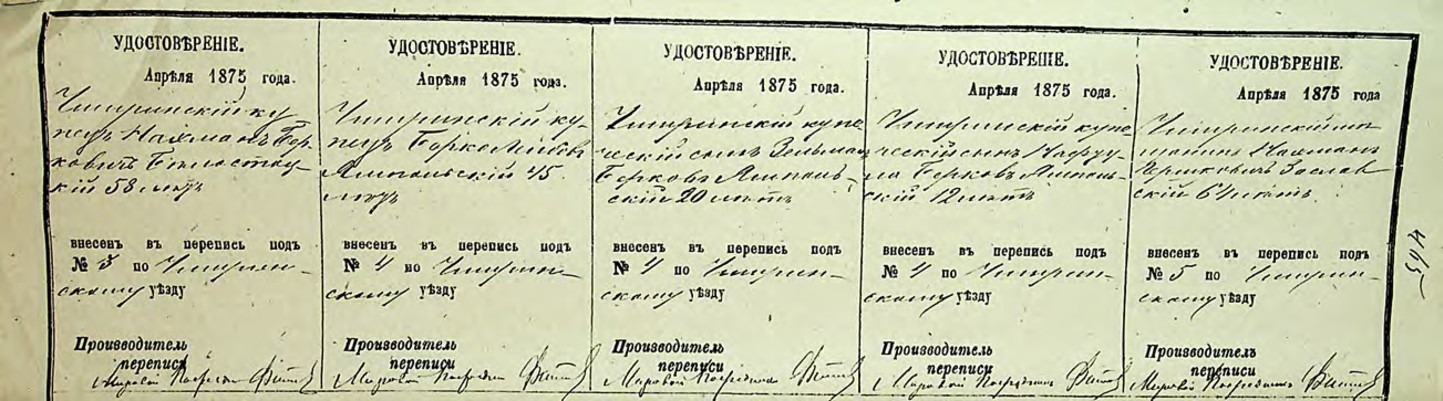 УДОСТОВѢРЕНІЕ.
Апрѣля 1875 года.
Чигиринскій ку
пецъ Нахманъ Бер
ковичъ Бѣлостоц
кій 58 лѣтъ
внесенъ въ перепись подъ
№ 3 по Чигирин-
скому уѣзду
Производитель
переписи
Мировой Посредникъ
УДОСТОВѢРЕНІЕ.
Апрѣля 1875 года.
Чигиринскій ку-
пецъ Берко Лейбовъ
Ямпольскій 45
лѣтъ
внесенъ въ перепись подъ
№ 4 по Чигирин-
скому уѣзду
Производитель
переписи
Мировой Посредникъ
УДОСТОВѢРЕНІЕ.
Апрѣля 1875 года.
Чигиринскій купе
ческій сынъ Зельман
Берковъ Ямполь-
скій 20 лѣтъ
внесенъ въ перепись подъ
№ 4 по Чигирин-
скому уѣзду
Производитель
переписи
Мировой Посредникъ
УДОСТОВѢРЕНІЕ.
Апрѣля 1875 года.
Чигиринскій купе
ческій сынъ
Берковъ Ямполь-
скій 12 лѣтъ
внесенъ въ перепись подъ
№ 4 по Чигирин-
скому уѣзду
Производитель
переписи
Мировой Посредникъ
УДОСТОВѢРЕНІЕ.
Апрѣля 1875 года
Чигиринскій мѣ
щанинъ Нахман
Гершковичъ Заслав
скій 64 лѣтъ
внесенъ въ перепись подъ
№ 5 по Чигирин-
скому уѣзду
Производитель
переписи
Мировой Посредникъ